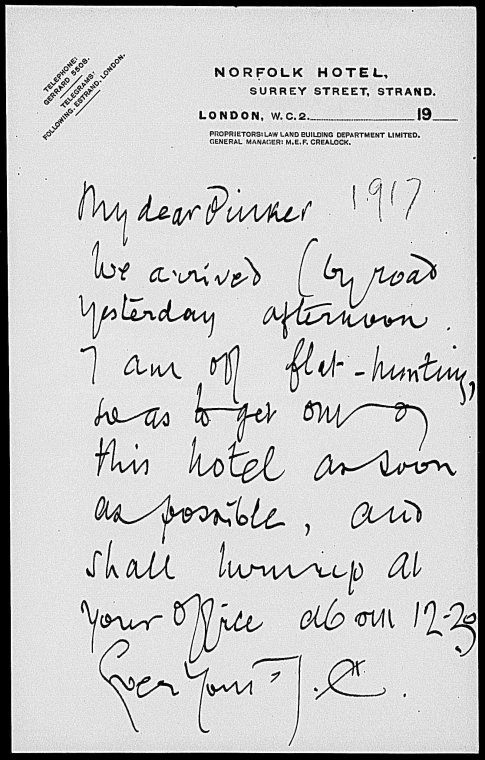 TELEPHONE:
GERRARD 5508.
TELEGRAMS:
FOLLOWING, ESTRAND, LONDON.
NORFOLK HOTEL,
SURREY STREET, STRAND.
LONDON, W.C.2. 19
PROPRIETORS: LAW LAND BUILDING DEPARTMENT LIMITED.
GENERAL MANAGER: M.E.F. CREALOCK.
1917
My dear Pinker
We arrived (by road
yesterday afternoon.
I am off flat-hunting,
so as to get out of
this hotel as soon
as possible, and
shall turn up at
your office about 12-30
Ever Yours J.C.